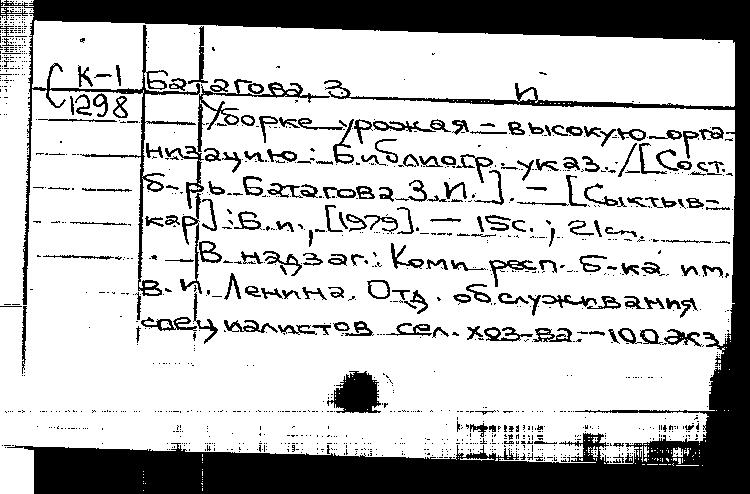 К-1 Батагова, З п
1298
Уборке урожая - высокую орга-
низацию: Библиогр. указ. /[Сост.
б-рь Батагова З.И.]. - [Сыктыв-
кар]: Б.и., [1979]. - 15с.; 21см.
В надзаг.: Коми респ. б-ка им.
В.И. Ленина. Отд. обслуживания
специалистов сел. хоз-ва. - 100экз